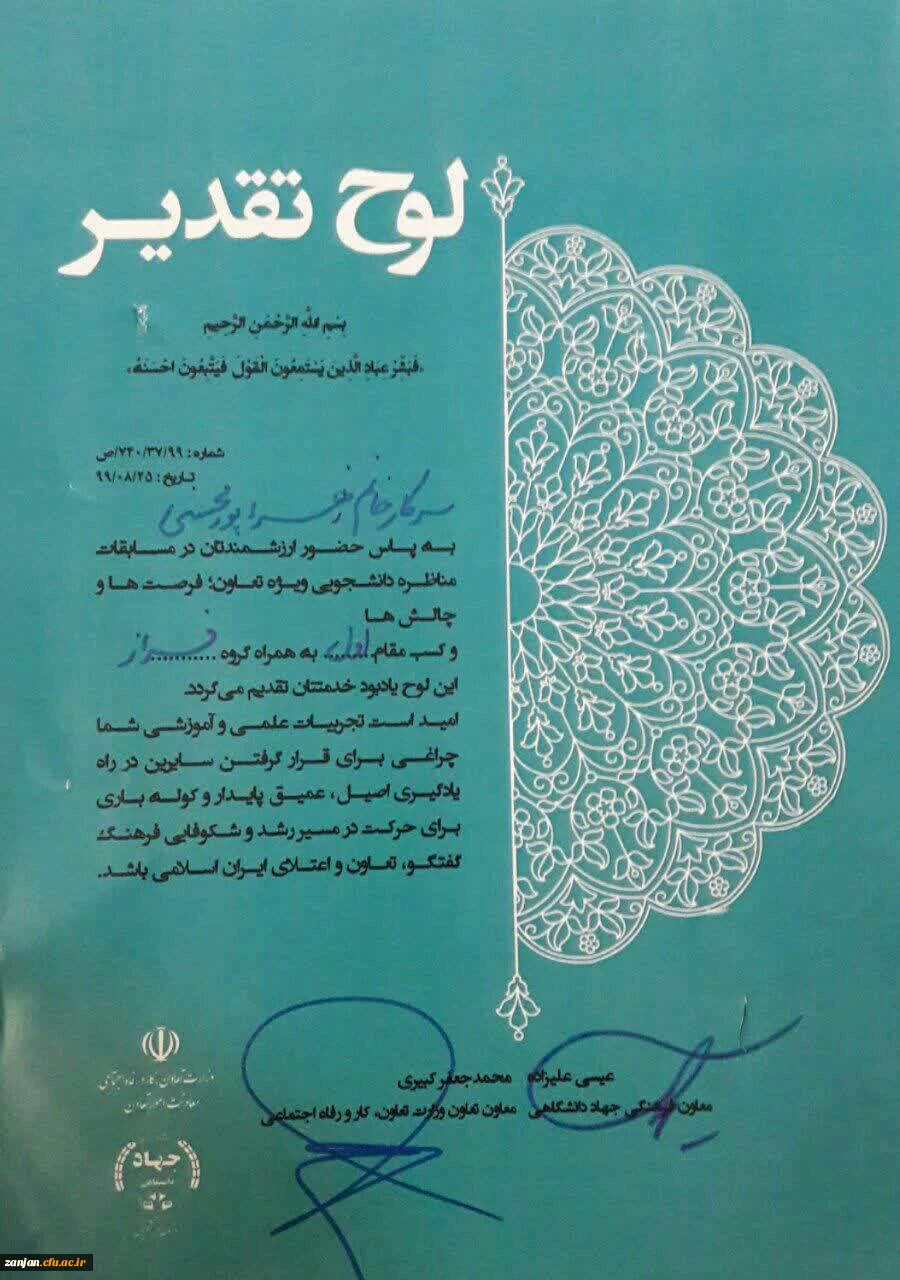 لوح تقدیر
بسم الله الرحمن الرحیم
«فَبَشِّر عِبادِ الَّذینَ یَستَمِعُونَ القَولَ فَیَتَّبِعُونَ اَحسَنَهُ»
شماره: ۷۴۰/۳۷/۹۹/ص
تاریخ: ۹۹/۰۸/۲۵
سرکار خانم زهرا پورمحسنی
به پاس حضور ارزشمندتان در مسابقات
مناظره دانشجویی ویژه تعاون؛ فرصت ها و
چالش ها
و کسب مقام اول به همراه گروه فراز
این لوح یادبود خدمتتان تقدیم می‌گردد.
امید است تجربیات علمی و آموزشی شما
چراغی برای قرار گرفتن سایرین در راه
یادگیری اصیل، عمیق پایدار و کوله باری
برای حرکت در مسیر رشد و شکوفایی فرهنگ
گفتگو، تعاون و اعتلای ایران اسلامی باشد.
عیسی علیزاده
معاون فرهنگی جهاد دانشگاهی
محمدجعفر کبیری
معاون تعاون وزارت تعاون، کار و رفاه اجتماعی
وزارت تعاون، کار و رفاه اجتماعی
معاونت امور تعاون
جهاد
دانشگاهی
zanjan.cfu.ac.ir